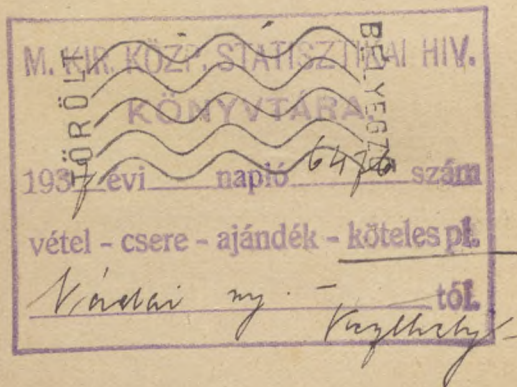 M. KIR. KÖZP. STATISZTIKAI HIV.
KÖNYVTÁRA.
TÖRÖLT
BÉLYEGZŐ
1937 évi napló 6476 szám
vétel - csere - ajándék - köteles pl.
ny. - tól.